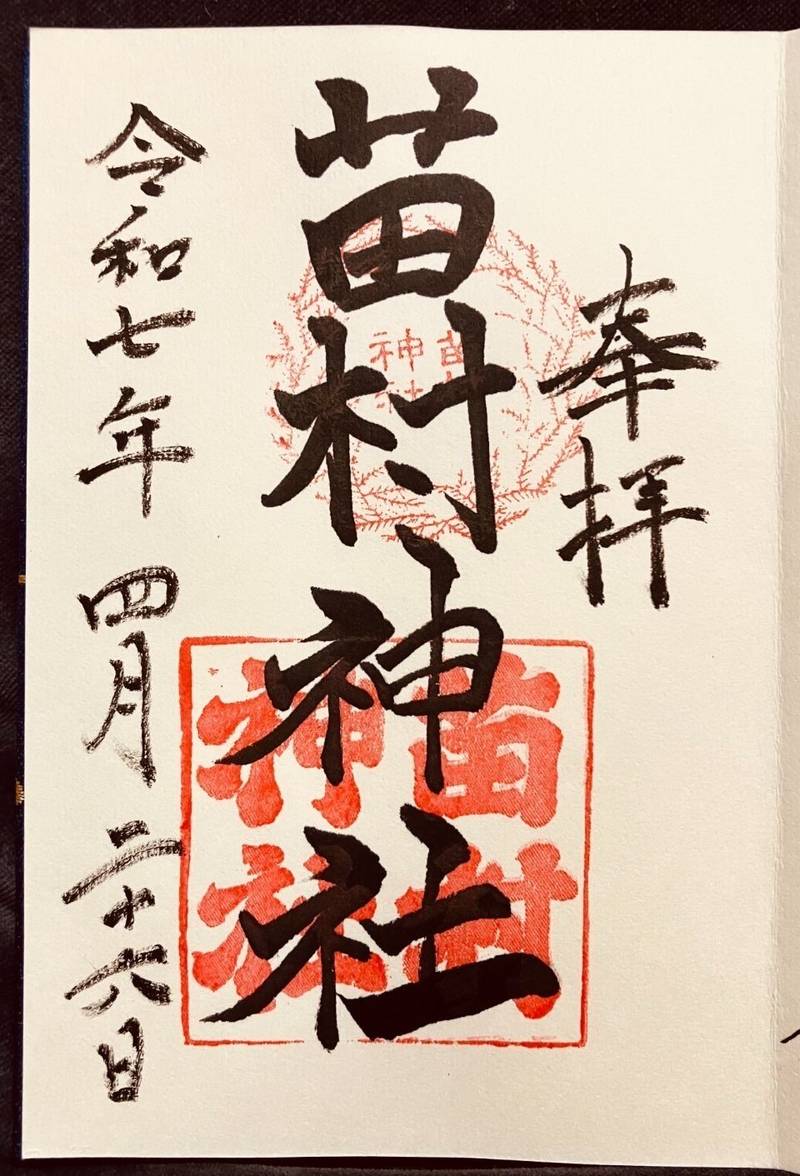 奉拝
苗村神社
令和七年 四月 二十六日
苗村
神社
苗村
神社